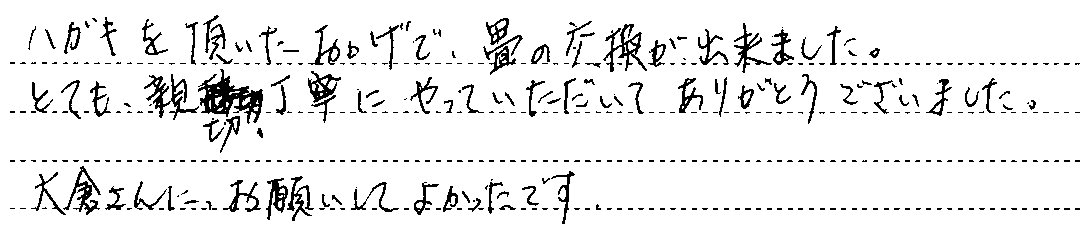 ハガキを頂いたおかげで、畳の交換が出来ました。
とても、親切、丁寧にやっていただいてありがとうございました。
大倉さんに、お願いしてよかったです.